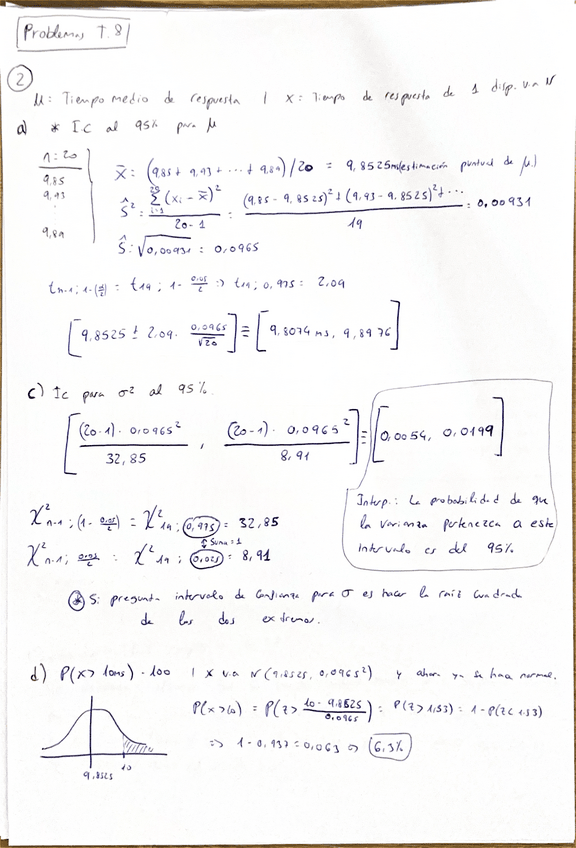 Problemas T.8
②
μ: Tiempo medio de respuesta | x = Tiempo de respuesta de 1 disp. v.a N
a) * I.C al 95% para μ
n = 20
9,85
9,93
⋮
9,89
x̄ = (9,85 + 9,93 + ... + 9,89)/20 = 9,8525 ms (estimación puntual de μ.)
Ŝ² = Σ(xᵢ - x̄)² / (20-1) = ((9,85 - 9,8525)² + (9,93 - 9,8525)² + ...) / 19 = 0,00931
Ŝ = √0,00931 = 0,0965
t n-1; 1-(α/2) = t 19; 1 - 0,05/2 => t 19; 0,975 = 2,09
[9,8525 ± 2,09 · 0,0965/√20] ≡ [9,8074 ms, 9,8976]
c) Ic para σ² al 95%.
[(20-1) · 0,0965² / 32,85 , (20-1) · 0,0965² / 8,91] ≡ [0,0054, 0,0199]
Interp.: La probabilidad de que
la varianza pertenezca a este
intervalo es del 95%
χ² n-1; (1 - 0,05/2) = χ² 19; 0,975 = 32,85
↕ Suma = 1
χ² n-1; 0,05/2 = χ² 19; 0,025 = 8,91
* Si pregunta intervalo de confianza para σ es hacer la raíz cuadrada
de los dos extremos.
d) P(x > 10ms) · 100 | X v.a N(9,8525, 0,0965²) y ahora ya se hace normal.
P(x > 10) = P(Z > (10 - 9,8525)/0,0965) = P(Z > 1,53) = 1 - P(Z < 1.53)
=> 1 - 0,937 = 0,063 => 6,3%
9,8525
10